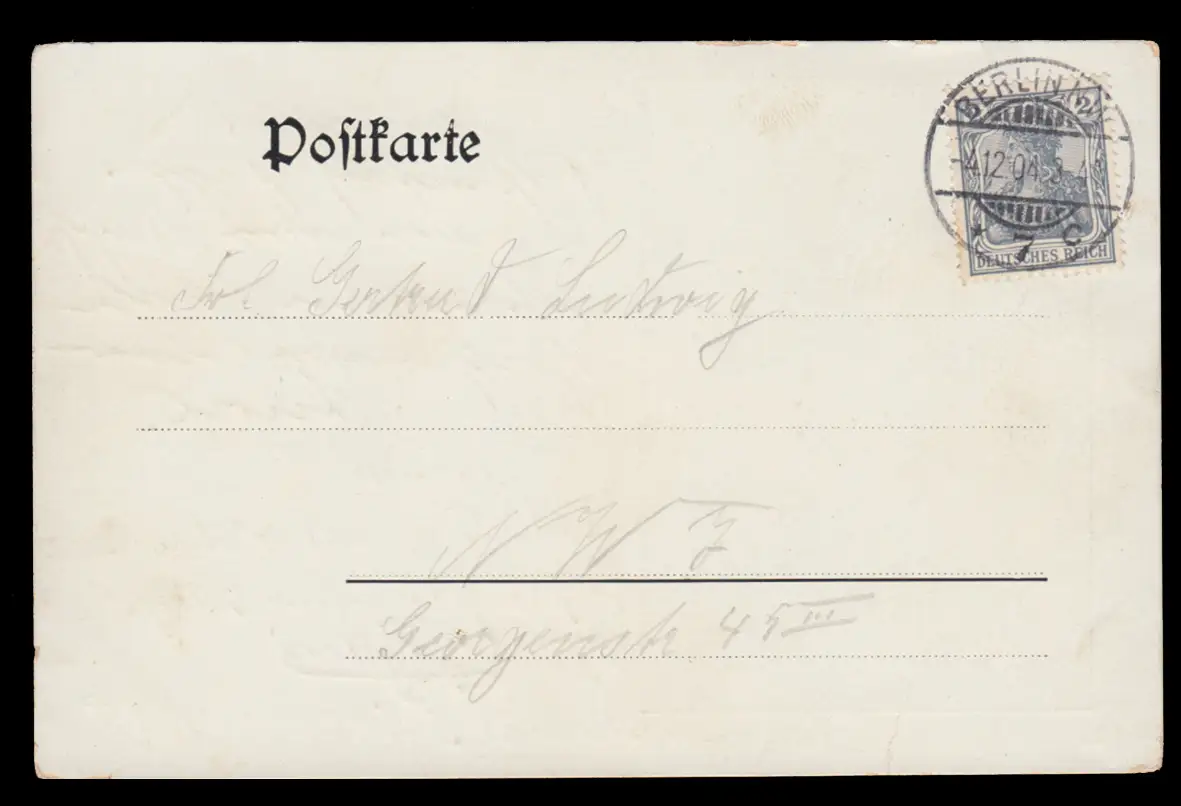 Postkarte
BERLIN
2 2
4.12.04
* 7 c
DEUTSCHES REICH
Frl. Gertrud Ludwig
NW 7
Georgenstr 45 III